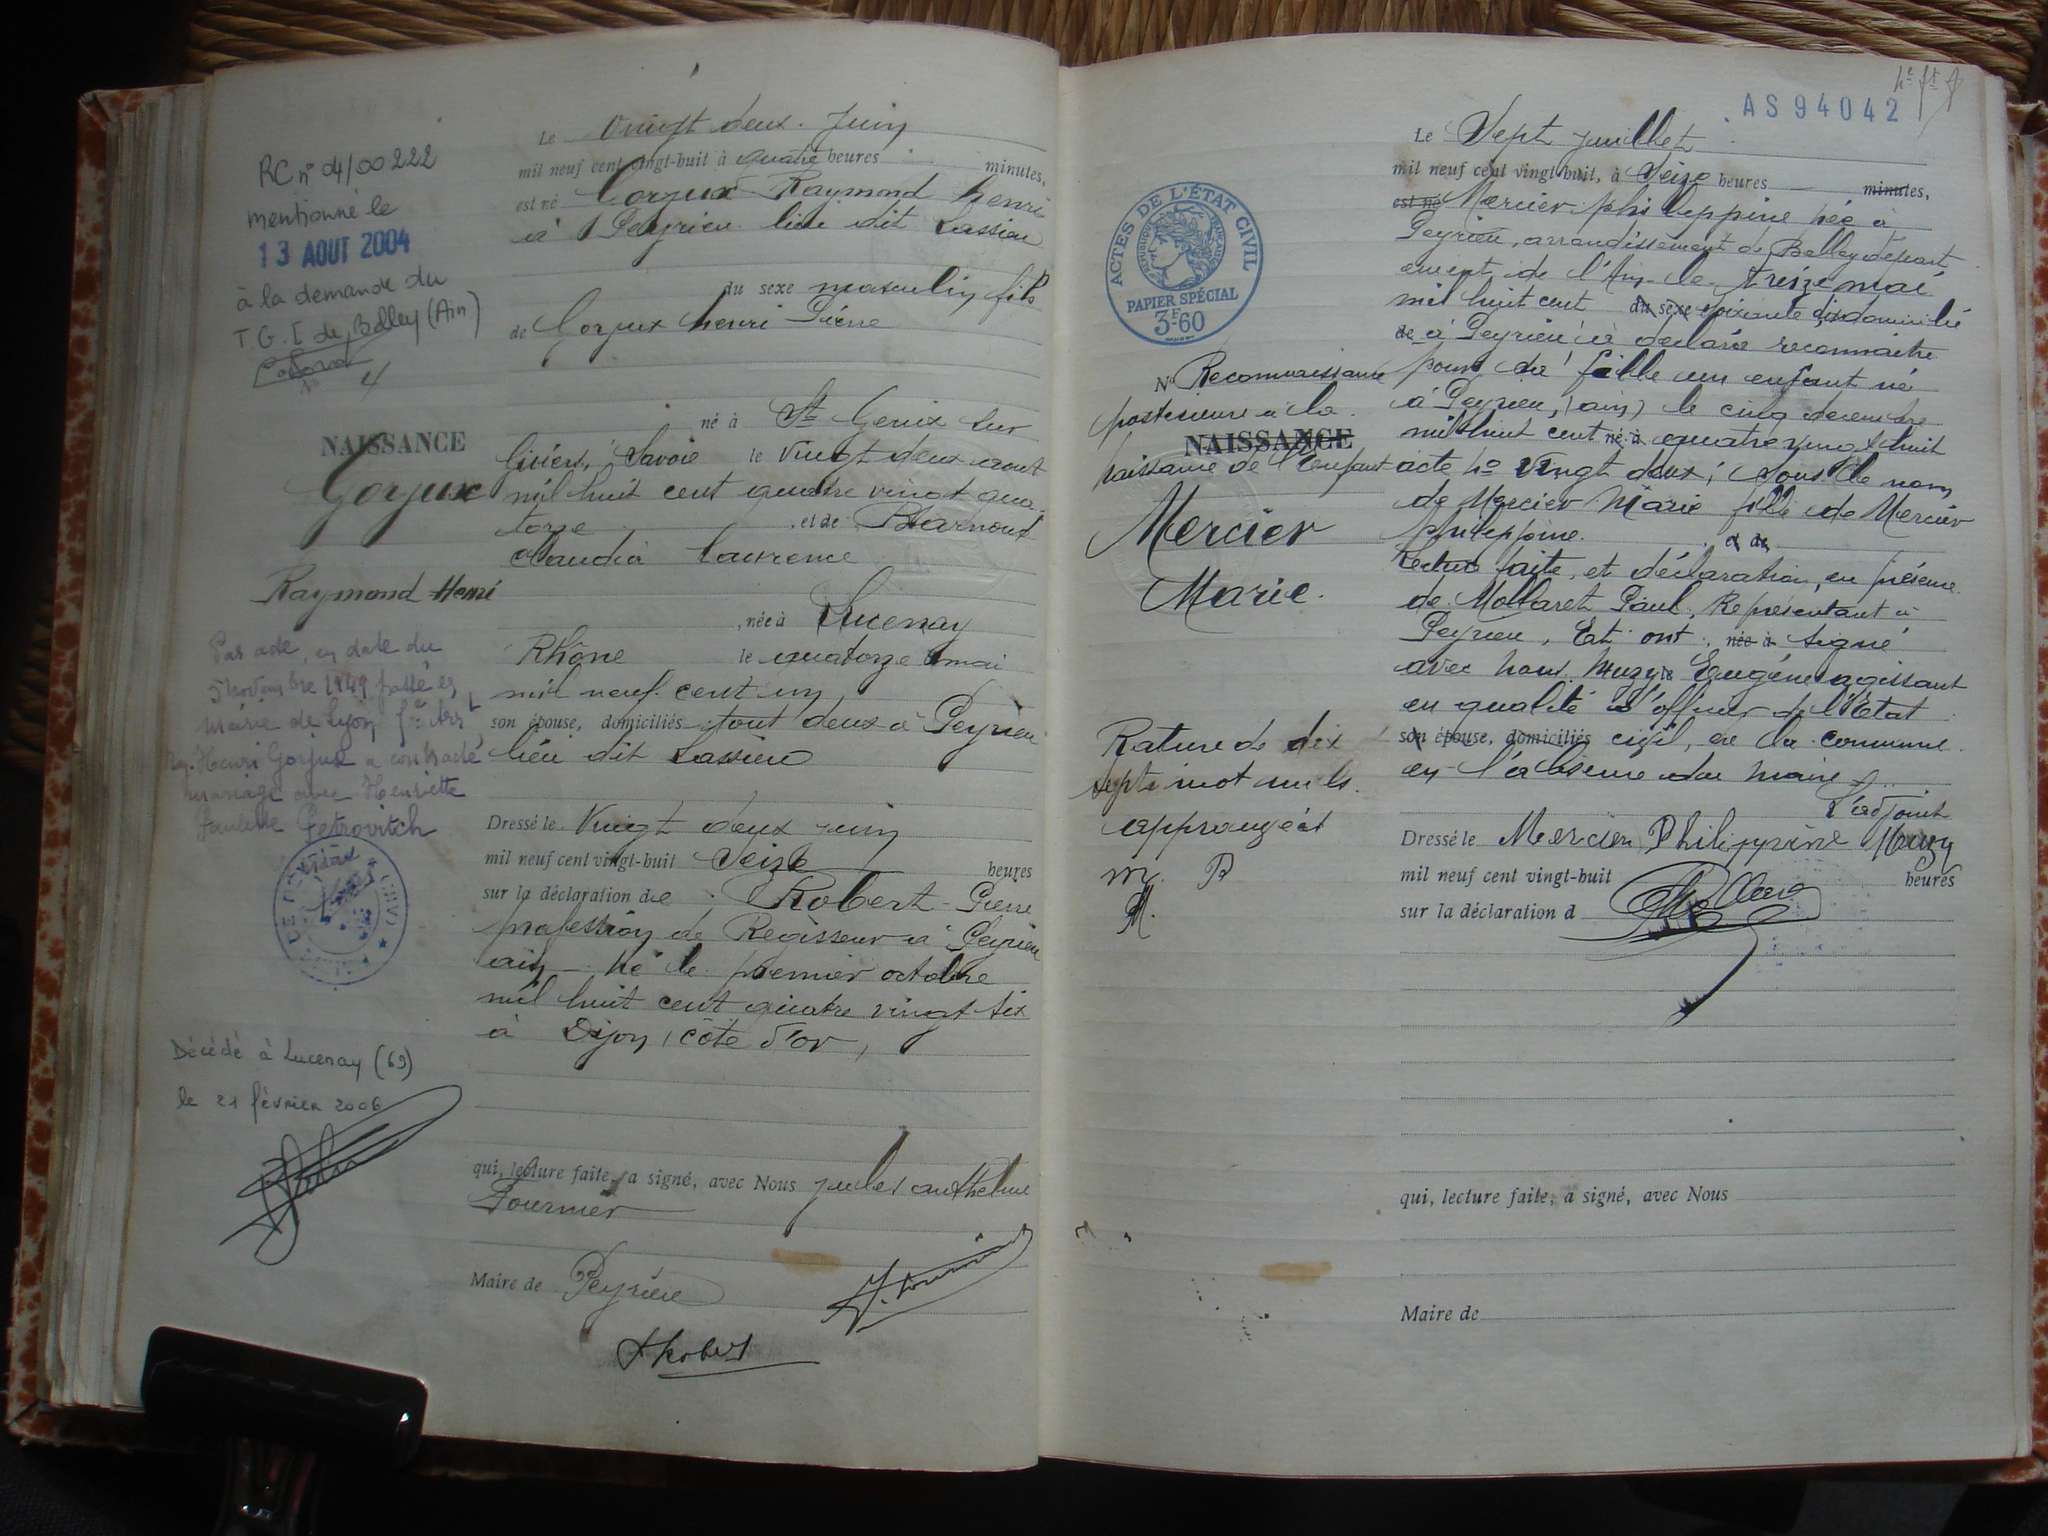 RC n° 04/00222
mentionné le
13 AOUT 2004
à la demande du
T G. I de Belley (Ain)
NAISSANCE
Gorjux
Raymond Henri
Par acte, en date du
5 novembre 1949 passé en
mairie de Lyon
Henri Gorjux a contracté
mariage avec Henriette
Paulette Petrovitch
Décédé à Lucenay (69)
le 21 février 2006
Le Vingt deux Juin
mil neuf cent vingt-huit à quatre heures minutes,
est né Gorjux Raymond henri
à Peyrieu lieu dit Lassieu
du sexe masculin fils
de Gorjux henri Pierre
né à St Genix sur
Guiers, Savoie le Vingt deux aout
mil huit cent quatre vingt qua-
torze et de Bharnoux
Claudia Laurence
, née à Lucenay
Rhône le quatorze mai
mil neuf cent un
son épouse, domiciliés tout deux à Peyrieu
lieu dit Lassieu
Dressé le Vingt deux juin
mil neuf cent vingt-huit Seize heures
sur la déclaration de Robert Pierre
profession de Régisseur à Peyrieu
ain - né le premier octobre
mil huit cent quatre vingt six
à Dijon, côte d'or,
qui, lecture faite, a signé, avec Nous jules anthelme
Fournier
Maire de Peyrieu
AS94042
ACTES DE L'ÉTAT CIVIL
RÉPUBLIQUE FRANÇAISE
PAPIER SPÉCIAL
3F60
N° Reconnaissance
posterieure à la
NAISSANCE
naissance de l'enfant
Mercier
Marie.
Rature de dix
sept mot nuls
approuvés
m. P
M.
Le Sept juillet
mil neuf cent vingt-huit, à Seize heures minutes,
est né Mercier philippine née à
Peyrieu, arrondissement de Belley départ
ement de l'Ain le treize mai
mil huit cent du sexe soixante dix domicilié
de à Peyrieu à déclaré reconnaitre
pour sa fille un enfant né
à Peyrieu, (ain) le cinq decembre
mil huit cent né à quatre vingt huit
acte n° Vingt deux; sous le nom
de Mercier Marie fille de Mercier
philippine. et de
Lecture faite, et déclaration, en présence
de Mollaret Paul, Représentant à
Peyrieu, Et ont née à signé
avec nous Muzy Eugéne agissant
en qualité d'officier de l'Etat
son épouse, domiciliés civil, de la commune
en l'absence du maire
L'adjoint
Dressé le Mercier Philippine Muzy
mil neuf cent vingt-huit heures
sur la déclaration d
qui, lecture faite, a signé, avec Nous
Maire de